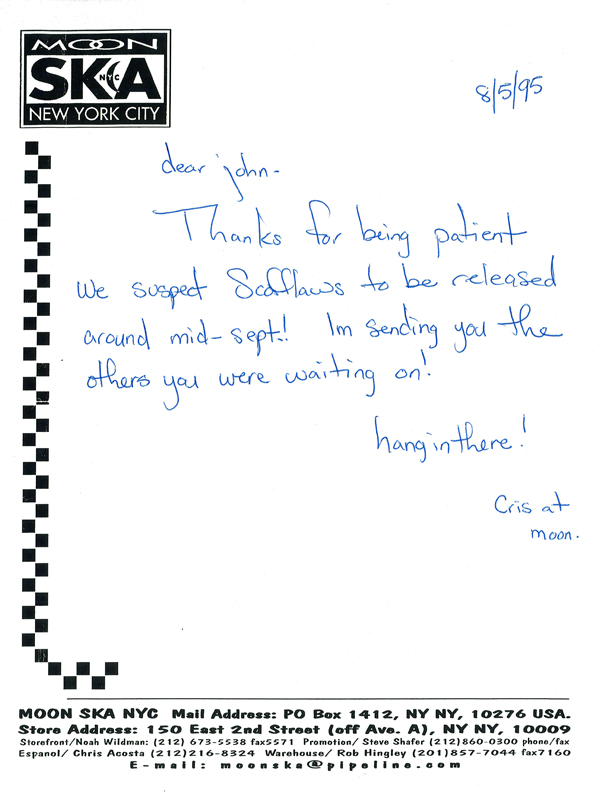 MOON
SKA
NYC
NEW YORK CITY
8/5/95
dear john-
Thanks for being patient
We suspect Scofflaws to be released
around mid-sept!! Im sending you the
others you were waiting on!
hang in there!
Cris at
moon.
MOON SKA NYC Mail Address: PO Box 1412, NY NY, 10276 USA.
Store Address: 150 East 2nd Street (off Ave. A), NY NY, 10009
Storefront/Noah Wildman: (212) 673-5538 fax5571 Promotion/ Steve Shafer (212)860-0300 phone/fax
Espanol/ Chris Acosta (212)216-8324 Warehouse/ Rob Hingley (201)857-7044 fax7160
E-mail: moonska@pipeline.com